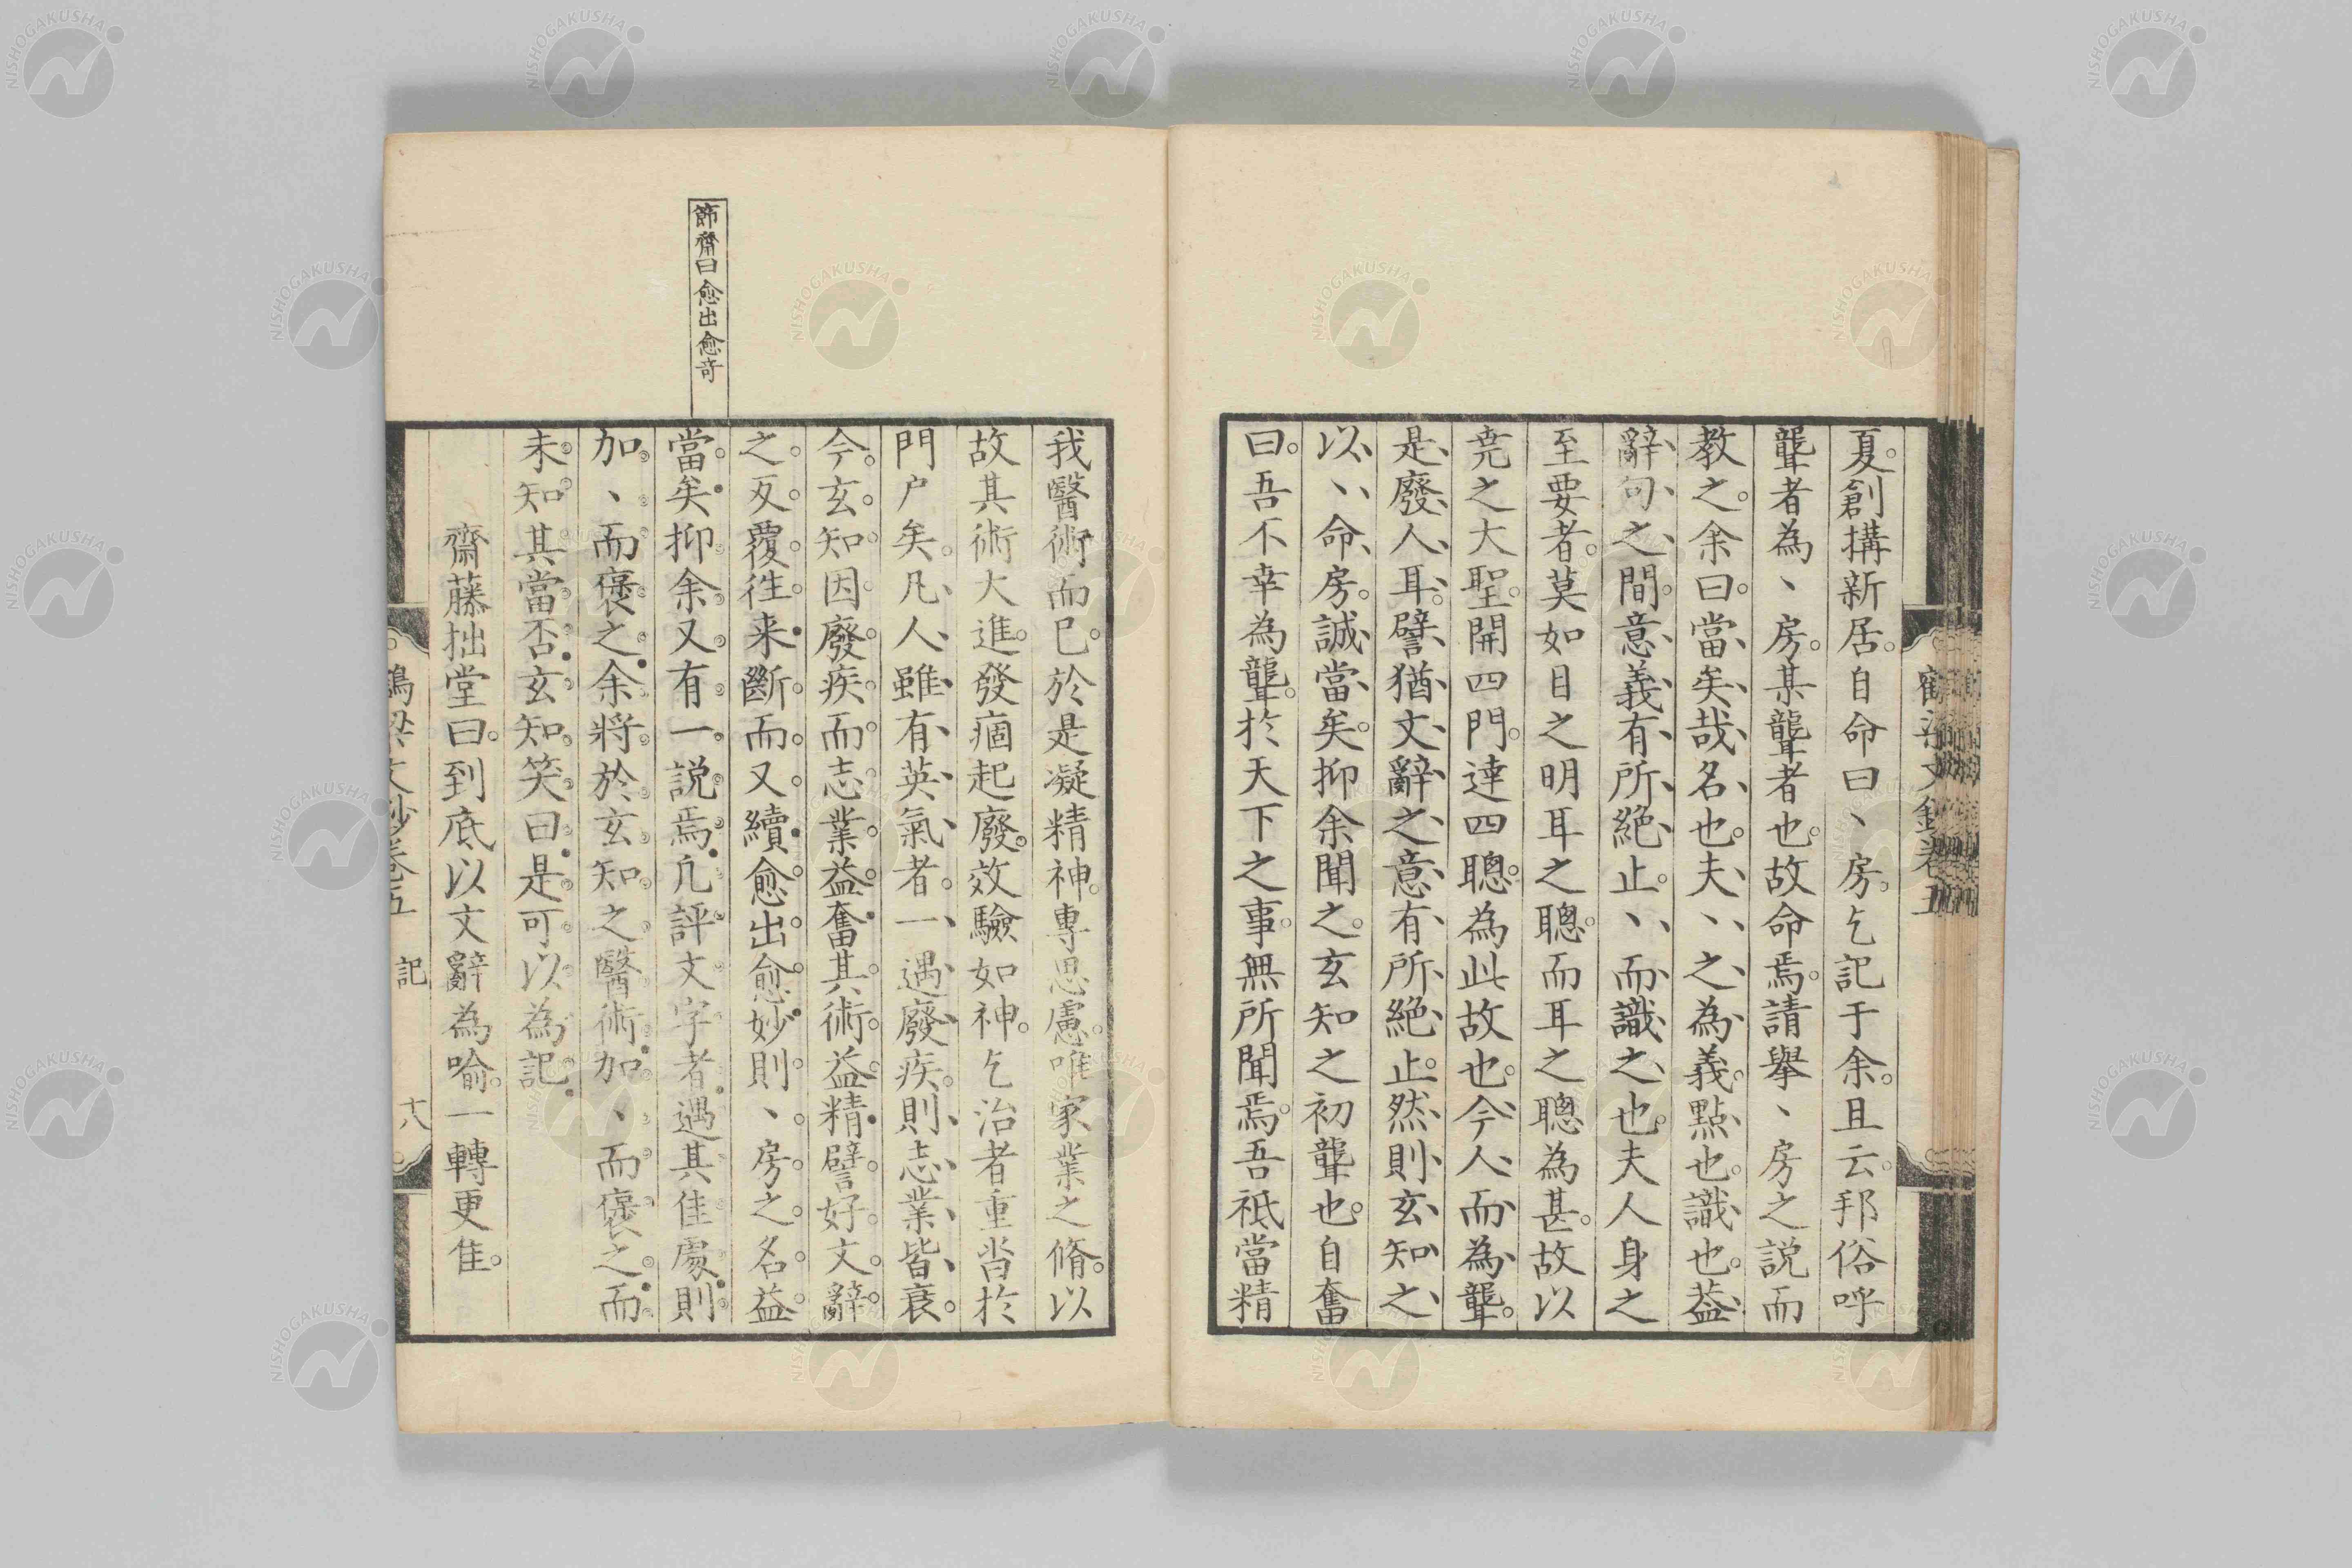 夏。創構新居。自命曰丶房。乞記于余。且云。邦俗呼
聾者為丶房。某聾者也。故命焉。請擧丶房之説而
教之。余曰。當矣哉名也。夫丶之為義。點也。識也。葢
辭句之間。意義有所絶止。丶而識之也。夫人身之
至要者。莫如目之明耳之聰。而耳之聰為甚。故以
堯之大聖。開四門。達四聰。為此故也。今人而為聾。
是廢人耳。譬猶文辭之意有所絶止。然則玄知之
以丶命房。誠當矣。抑余聞之。玄知之初聾也。自奮
曰。吾不幸為聾。於天下之事。無所聞焉。吾祇當精
我醫術而已。於是凝精神。專思慮。唯家業之脩。以
故其術大進。發痼起廢。效驗如神。乞治者重沓於
門戶矣。凡人雖有英氣者。一遇廢疾。則志業皆衰。
今玄知因廢疾而志業益奮。其術益精。譬好文辭
之反覆徃来。斷而又續。愈出愈妙。則丶房之名益
當矣。抑余又有一説焉。凢評文字者。遇其佳處。則
加丶而褒之。余將於玄知之醫術。加丶而褒之。而
未知其當否。玄知笑曰。是可以為記。
齋藤拙堂曰。到底以文辭為喻。一轉更佳。
節齋曰愈出愈竒
鶴梁文鈔卷五
記
十八